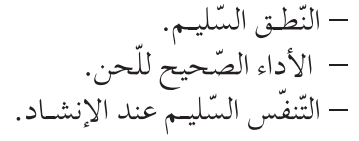 – النّطـق السّليـم.
– الأداء الصّحيح للّحن.
– التّنفّس السّليـم عند الإنشـاد.